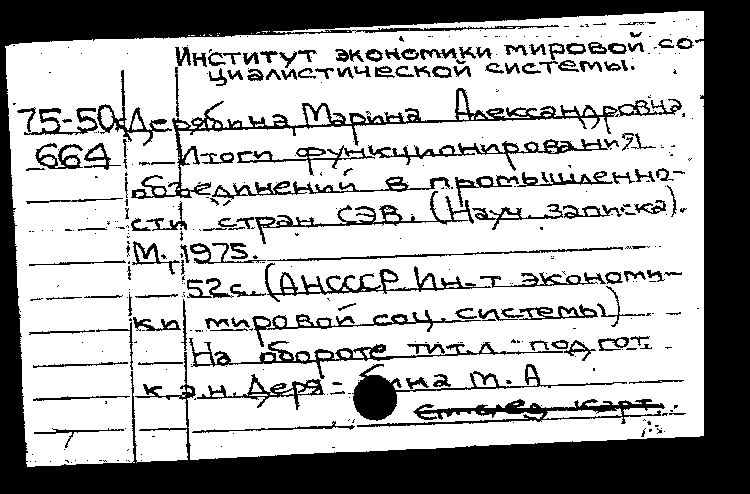 Институт экономики мировой со-
циалистической системы.
75-50к Дерябина, Марина Александровна.
664 Итоги функционирования
объединений в промышленно-
сти стран СЭВ. (Науч. записка).
М., 1975.
52 с. (АН СССР Ин-т экономи-
ки мировой соц. системы)
На обороте тит. л. - подгот.
к.э.н. Деря-бина М. А